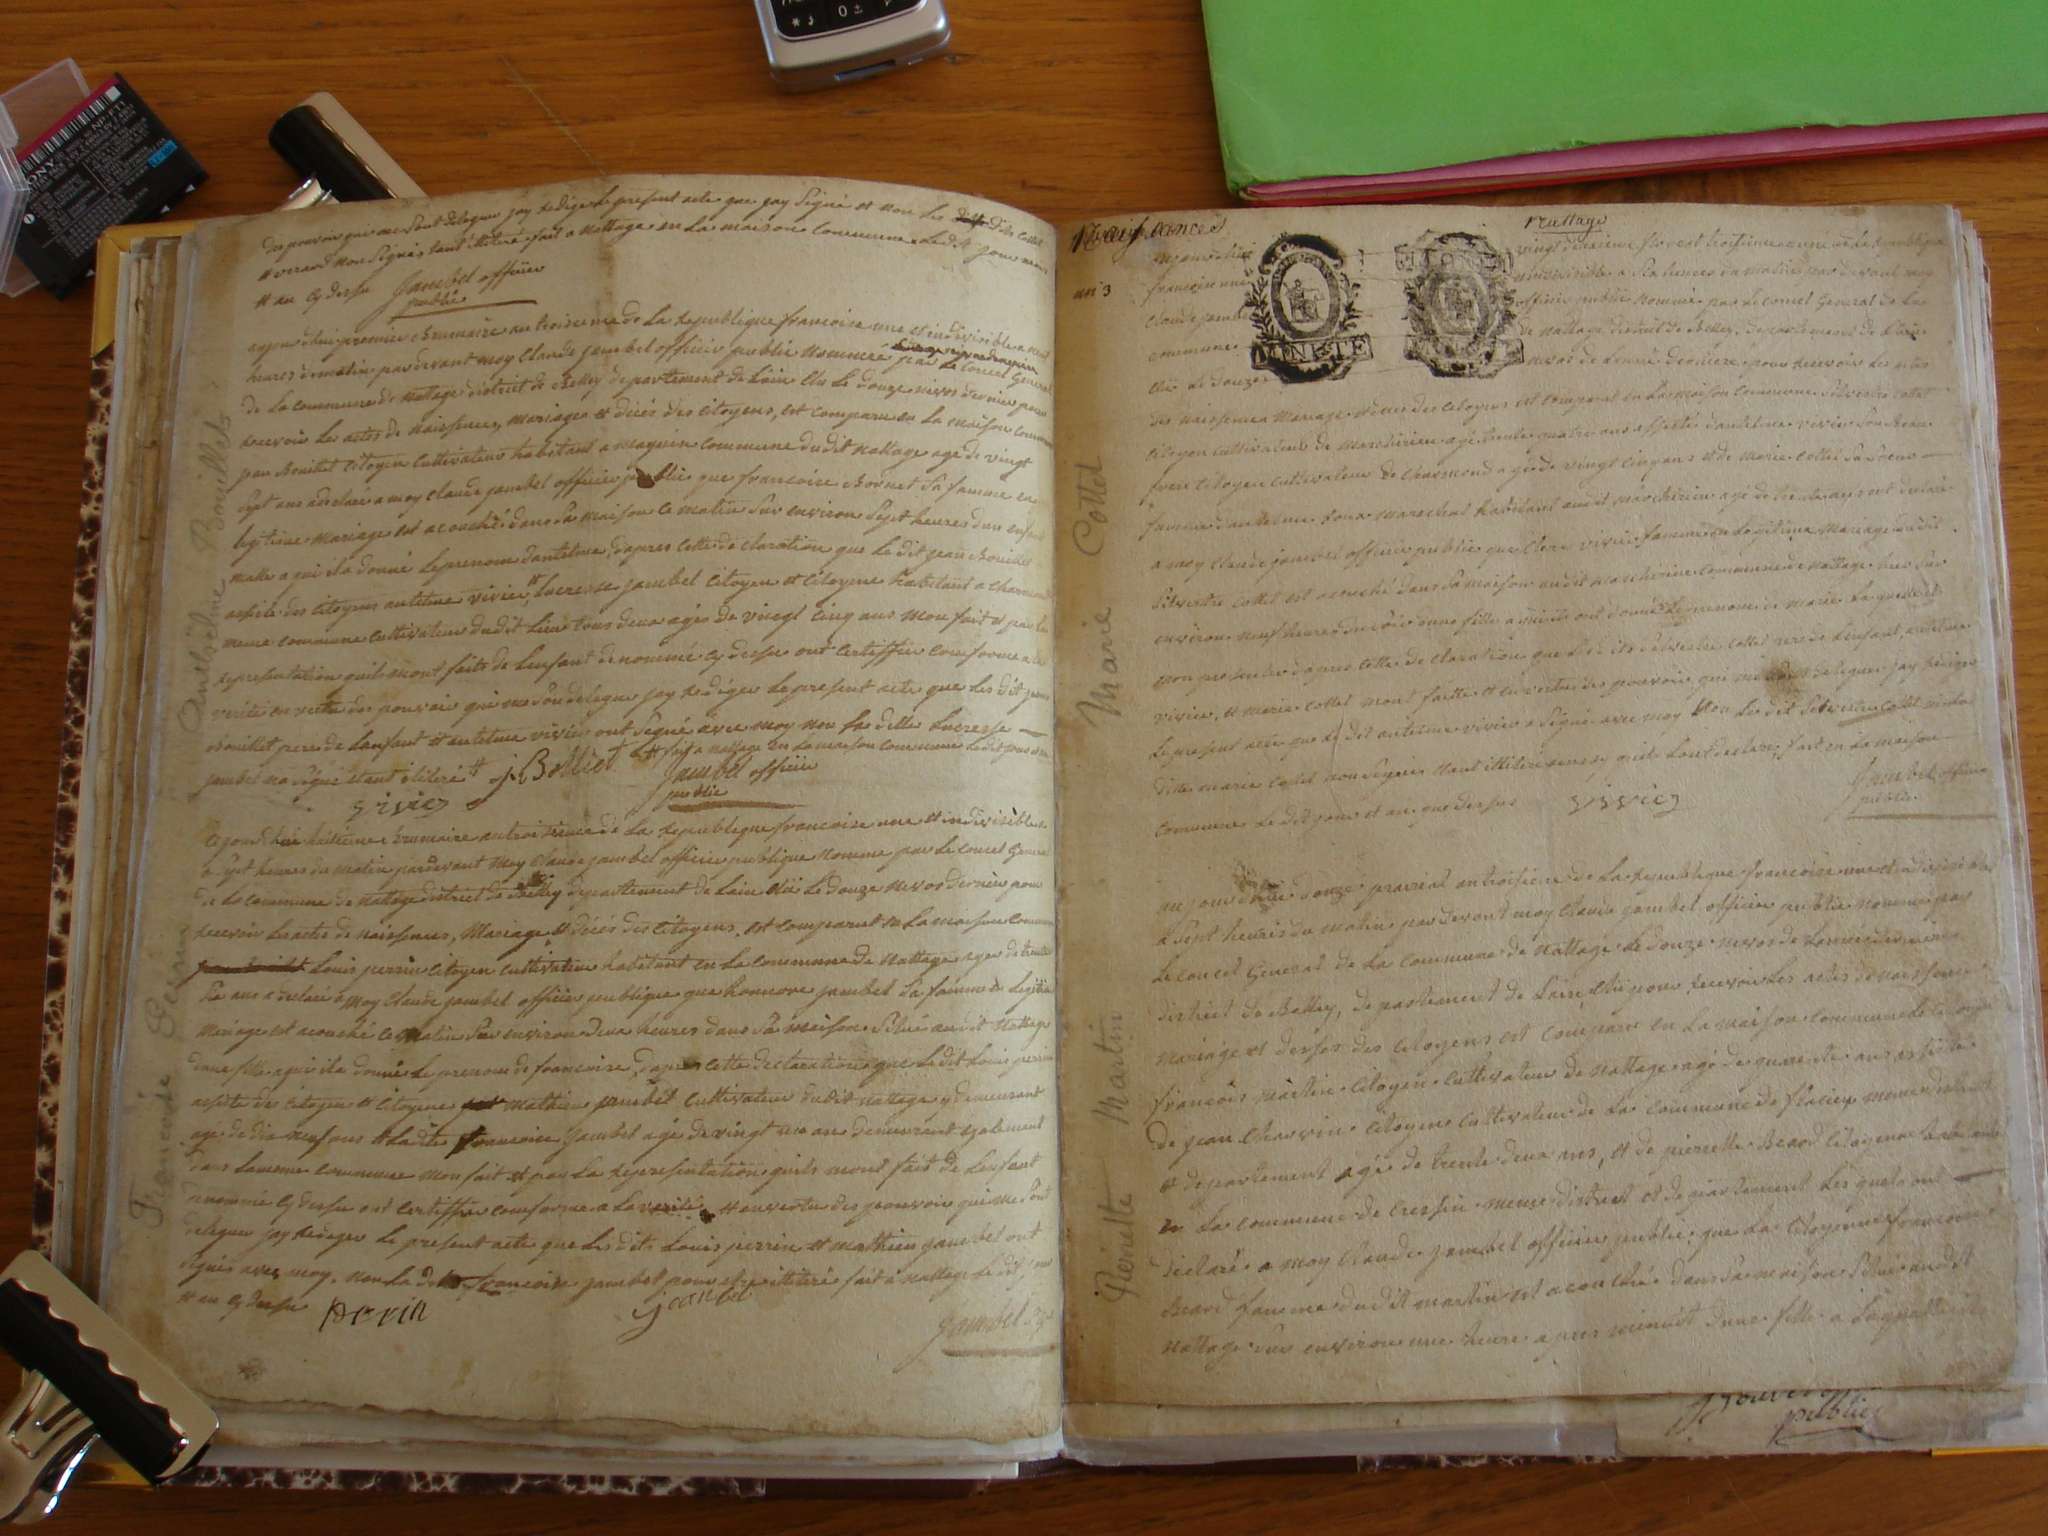 des pouvoir que me sont delegue jay redige le present acte que jay signé et non les dits Cottet
et verard non signes, tant illiteré fait a Nattage en la maison commune le dit jour mois
et an cy dessu Jambel officier
public
aujourdhui premier Brumaire an troisieme de la republique francoise une et indivisible a neuf
heures du matin par devant moy Claude jambel officier public nommée par le Conseil General
de la commune de Nattage district de Belley departement de Lain Elu le douze nivos dernier pour
recevoir les actes de Naissences, mariages et décés des citoyens, est comparu en la maison commune
jean Bouillet citoyen cultivateur habitant a commune dudit Nattage age de vingt
sept ans a declaré a moy Claude jambel officier public que francoise Bornet sa famme en
legitime mariage est acouché dans sa maison ce matin sur environ sept heures dun enfant
malle a qui il a donné le prenom dantelme, dapres cette declaration que le dit jean Bouillet
assisté des citoyens antelme vivier, Lucresse jambel citoyen et citoyene habitant a Charmond
meme commune cultivateur dudit Lieu tous deux agés de vingt cinq ans mon fait et par la
representation quils mont faits de Lenfant denommé cy dessu ont certiffier comforme a la
verite en vertu des pouvoir qui me sont delegue jay rediger le present acte que les dit jean
Bouillet pere de Lenfant et antelme vivier ont signé avec moy non la ditte Lucresse
jambel na signé etant iliteré # j. Bolliet # fait a nattage en la maison commune le dit jour et an
vivier
Jambel officier
public
aujourdhui huitieme Brumaire an troisieme de la republique francoise une et indivisible
a sept heures du matin pardevant moy Claude jambel officier publique nomme par le Conseil General
de la commune de Nattage district de Belley departement de Lain Elu le douze nivos dernier pour
recevoir les actes de naissences, Mariage et décés des citoyens, est comparut en la maison commune
Louis perrin citoyen cultivateur habitant en la commune de Nattage agee de trente
six ans a declaré a moy Claude jambel officier publique que honnore jambel sa famme en legitime
mariage est acouché ce matin sur environ deux heures dans sa maison situé audit Nattage
dune fille a qui il a donné le prenom de francoise, dapres cette declaration que le dit Louis perrin
assisté des citoyen et citoyene mathieu jambel cultivateur dudit Nattage y demeurant
agé de dix neuf ans et la dite francoise jambel agée de vingt un ans demeurant egalement
dans la meme commune mon fait et par la representation quils mont fait de Lenfant
denommé cy dessu ont certiffier comforme a la verité, et en vertu des pouvoir qui me sont
delegue jay rediger le present acte que les dits Louis perrin et mathieu jambel ont
signés avec moy, non la dite francoise jambel pour etre illiteré fait a Nattage le dit jour
et an cy dessu perin jeanbel
Jambel
Anthelme Bouillets
Francoise Perrin
Naissances Nattage
an 3
aujourdhui vingt deuxieme floreal troisieme anne de la republique
francoise une indivisible a six heures du matin par devant moy
Claude jambel officier public Nommé par le Conseil General de La
commune de Nattage district de Belley, departement de Lain
Elu le Douze nivos de Lannée derniere pour recevoir les actes
des naissences Mariage et deces des citoyens est comparut en la maison commune silvestre cottet
citoyen cultivateur de agé trente quatre ans assisté dantelme vivier son beau
frere citoyen cultivateur de Charmond agé de vingt cinq ans et de marie cottet sa soeur
a moy Claude jambel officier public que vivier famme en legitime mariage dudit
silvestre cottet est acouché dans sa maison audit commune de Nattage hier sur
environ neuf heures du soir dune fille a qui ils ont donné le prenom de marie
dapres cette declaration que silvestre cottet pere de Lenfant, antelme
vivier, et marie cottet mont faitte et en vertu des pouvoir qui me sont delegue jay rediger
le present acte que le dit antelme vivier a signé avec moy non le dit silvestre cottet ni la
ditte marie cottet non signés etant illiteré fait en la maison
commune le dit jour et an que dessus vivier
Jambel officier
public.
aujourdhui douze prairial an troisieme de la republique francoise une et indivisible
a sept heures du matin par devant moy Claude jambel officier public nommé par
le Conseil General de la commune de Nattage le douze nivos de Lannée derniere
district de Belley, departement de Lain, Elu pour recevoir les actes de naissence
mariage et desses des citoyens est comparu en la maison commune le citoyen
francois martin citoyen cultivateur de Nattage agé de quarente ans assisté
de jean Charvin citoyen cultivateur de la commune de meme district
et departement agé de trente deux ans, et de pierrette Beard citoyenne habitante
en la commune de Cressin meme district et departement Les quels ont
declaré a moy Claude jambel officier public que la citoyenne francoise
Beard famme dudit martin est acouché dans sa maison situé audit
Nattage sur environ une heure apres minuit dune fille a laquelle
Marie Cottet
Pierrette Martin
public
SONY
NP-FT1